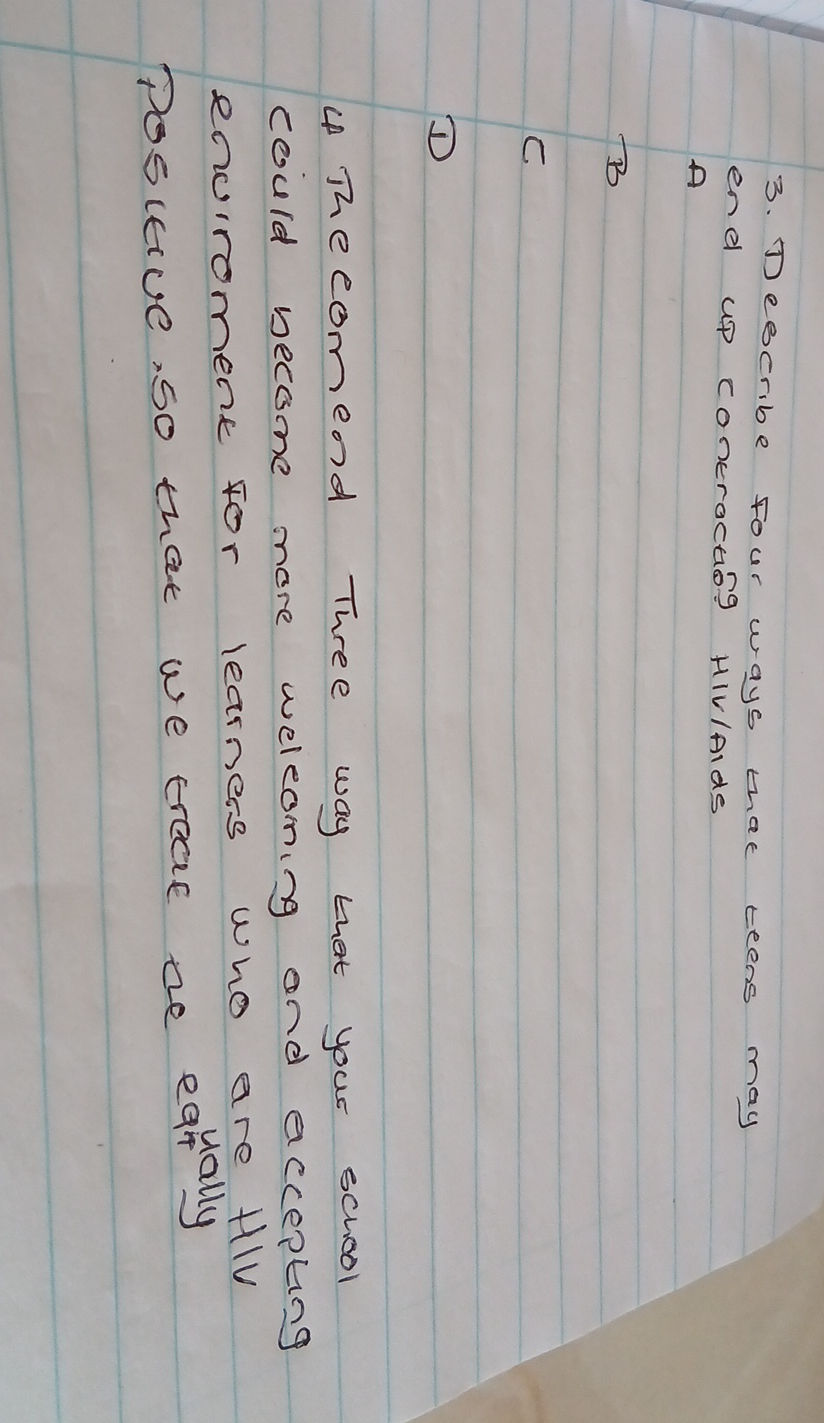 3. Describe Four ways that teens may
end up contracting HIV/Aids
A
B
C
D
4 Thecomend Three way that your school
could become more welcoming and accepting
enviroment For learners who are HIV
Positive, so that we treat he equally